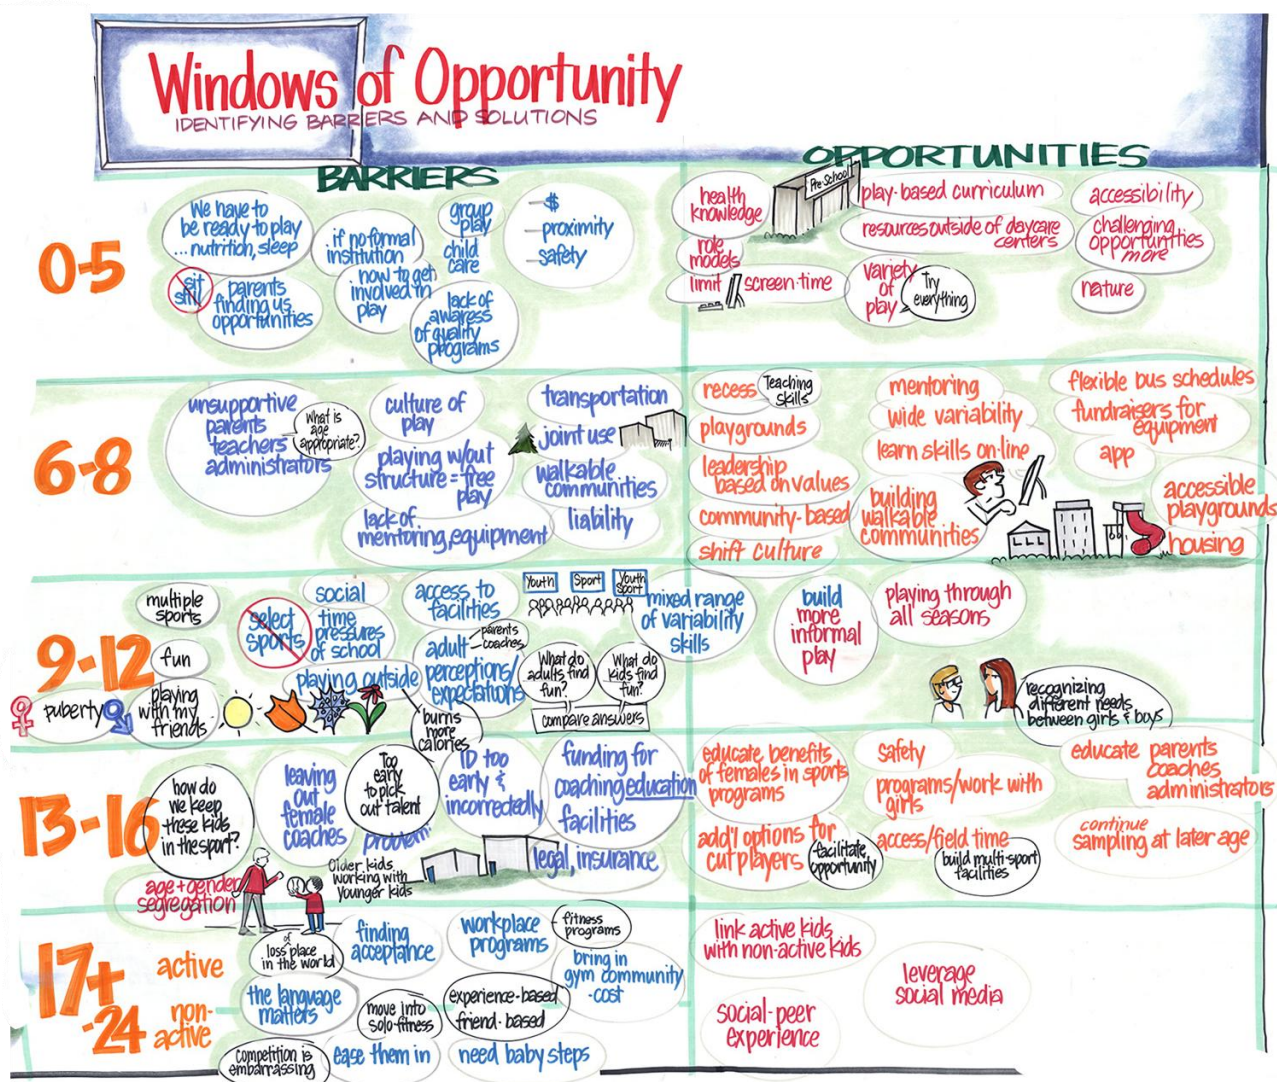 Windows of Opportunity
IDENTIFYING BARRIERS AND SOLUTIONS
BARRIERS
OPPORTUNITIES
0-5
We have to
be ready to play
...nutrition, sleep
sit
still
parents
finding us
opportunities
if no formal
institution
how to get
involved in
play
group
play
child
care
lack of
awaress
of quality
programs
- $
- proximity
- safety
health
knowledge
role
models
limit
screen-time
Pre-School
play-based curriculum
resources outside of daycare
centers
variety
of
play
Try
everything
accessibility
challenging
opportunities
more
nature
6-8
unsupportive
parents
teachers
administrators
What is
age
appropriate?
culture of
play
playing w/out
structure = free
play
lack of
mentoring, equipment
transportation
joint use
walkable
communities
liability
recess
Teaching
skills
playgrounds
leadership
based on values
community-based
shift culture
mentoring
wide variability
learn skills on-line
building
walkable
communities
flexible bus schedules
fundraisers for
equipment
app
accessible
playgrounds
housing
9-12
multiple
sports
fun
puberty
playing
with my
friends
select
sports
social
time
pressures
of school
playing outside
burns
more
calories
access to
facilities
adult
perceptions/
expectations
parents
coaches
Youth
Sport
Youth
Sport
What do
adults find
fun?
What do
kids find
fun?
compare answers
mixed range
of variability
skills
build
more
informal
play
playing through
all seasons
recognizing
different needs
between girls & boys
13-16
how do
we keep
these kids
in the sport?
age + gender
segregation
leaving
out
female
coaches
Too
early
to pick
out talent
problem.
Older kids
working with
Younger kids
ID too
early &
incorrectedly
funding for
coaching education
facilities
legal, insurance
educate benefits
of females in sports
programs
add'l options for
cut players
facilitate
opportunity
safety
programs/work with
girls
access/field time
build multi-sport
facilities
educate parents
coaches
administrators
continue
sampling at later age
17+
-24
active
non-
active
of
loss place
in the world
the language
matters
competition is
embarrassing
finding
acceptance
move into
solo-fitness
ease them in
workplace
programs
fitness
programs
experience-based
friend-based
need baby steps
bring in
gym community
-cost
link active kids
with non-active kids
social-peer
experience
leverage
social media